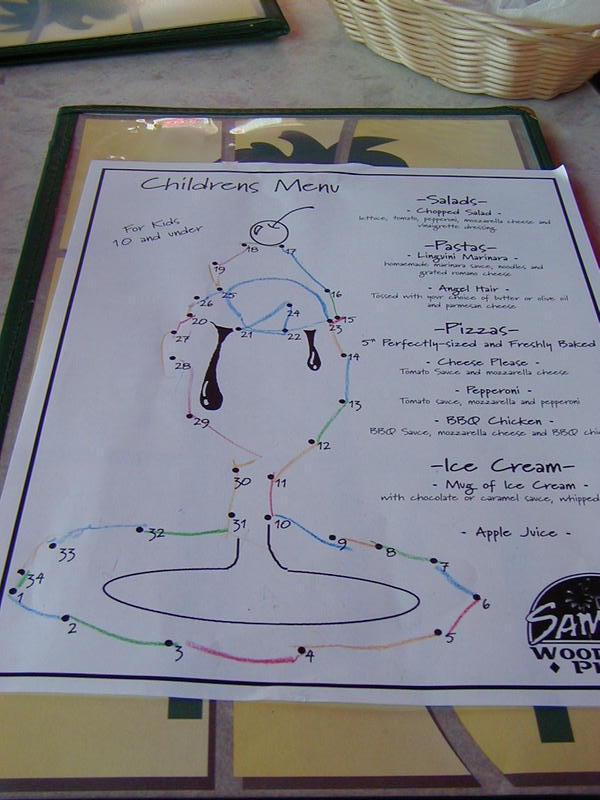 Childrens Menu
For Kids
10 and under
-Salads-
- Chopped Salad -
lettuce, tomato, pepperoni, mozzarella cheese and
vinaigrette dressing
-Pastas-
- Linguini Marinara -
homemade marinara sauce, noodles and
grated romano cheese
- Angel Hair -
Tossed with your choice of butter or olive oil
and parmesan cheese
-Pizzas-
5" Perfectly-sized and Freshly Baked
- Cheese Please -
Tomato Sauce and mozzarella cheese
- Pepperoni -
Tomato sauce, mozzarella and pepperoni
- BBQ Chicken -
BBQ Sauce, mozzarella cheese and BBQ chi
-Ice Cream-
- Mug of Ice Cream -
with chocolate or caramel sauce, whipped
- Apple Juice -
SAM
WOO
PI
18 17
19
25 16
26 24
20 15
21 22 23
27 14
28
13
29
12
30 11
31 10
32 9
33 8
7
34
1 6
2 5
3 4